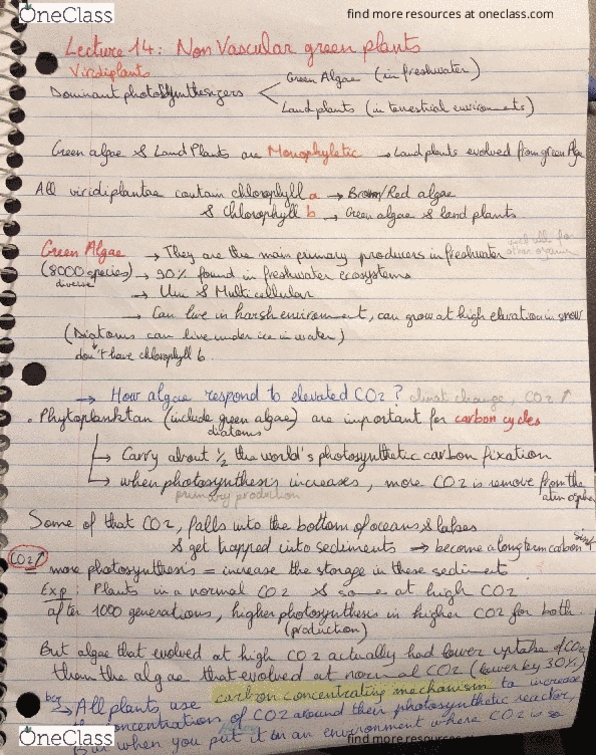 OneClass
find more resources at oneclass.com
Lecture 14: Non Vascular green plants
Viridiplants
Dominant photosynthesizers
Green Algae (in freshwater)
Land plants (in terrestrial environments)
Green algae & Land Plants are Monophyletic → Land plants evolved from green Algae
All viridiplantae contain chlorophyll a → Brown/Red algae
& chlorophyll b → Green algae & land plants.
Green Algae → They are the main primary producers in freshwater
(8000 species) → 90% found in freshwater ecosystems
diverse
→ Uni & Multicellular
→ Can live in harsh enviroment, can grow at high elevation in snow
(Diatoms can live under ice in water)
don't have chlorophyll b.
→ How algae respond to elevated CO2? climat change, CO2 ↑
• Phytoplanktan (include green algae) are important for carbon cycles
diatoms
↳ Carry about 1/2 the world's photosynthetic carbon fixation
↳ when photosynthesis increases, more CO2 is remove from the
primary production
atmosphere
Some of that CO2, falls into the bottom of oceans & lakes
& get trapped into sediments → become a long term carbon sink
CO2 ↑
= more photosynthesis = increase the storage in these sediment.
Exp: Plants in a normal CO2 & some at high CO2
after 1000 generations, higher photosynthesis in higher CO2 for both.
(production)
But algae that evolved at high CO2 actually had lower uptake of CO2
them the algae that evolved at normal CO2 (lower by 30%)
bcz
→ All plants use carbon concentrating mechanism to increase
the concentrations of CO2 around their photosynthetic reactor,
But when you put it in an environment where CO2 is
OneClass
find more resources at oneclass.com